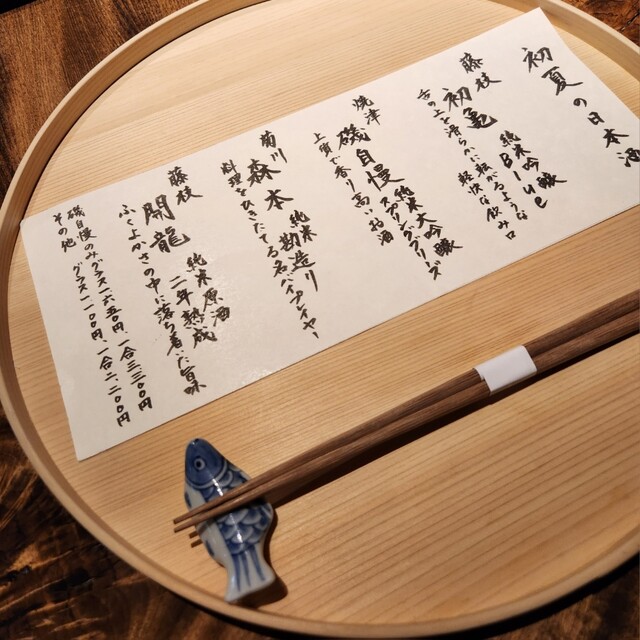 初夏の日本酒
藤枝
初亀 純米吟醸Blue
舌の上で滑らかに転がるような
軽快な飲み口
焼津
磯自慢 純米大吟醸
スプリングブリーズ
上質で香り高いお酒
菊川
森本 純米 勘造り
料理をひきたてる名バイプレイヤー
藤枝
開龍 純米原酒
二年熟成
ふくよかさの中に落ち着いた旨味
磯自慢のみグラス一六五〇円、一合三三〇〇円
その他 グラス一一〇〇円、一合二二〇〇円